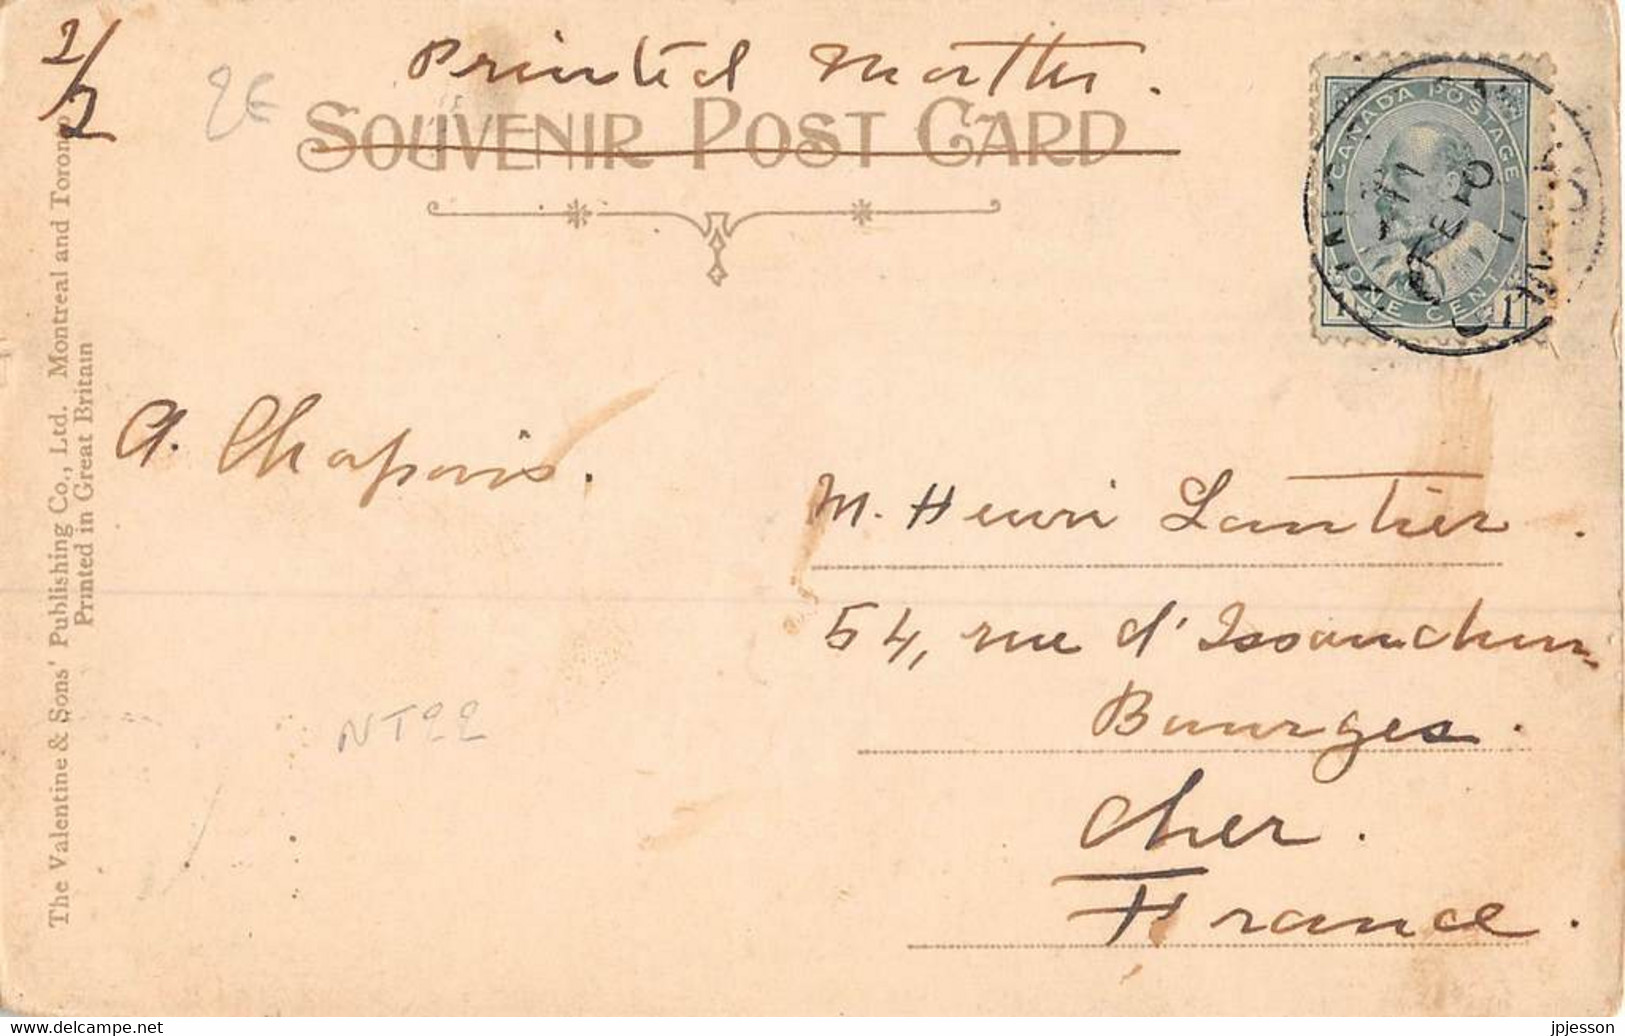 2/2
2€
Printed Matter.
SOUVENIR POST CARD
CANADA POSTAGE
ONE CENT
1 1
The Valentine & Sons' Publishing Co., Ltd. Montreal and Toronto
Printed in Great Britain
A. Chapuis.
M. Henri Lantier.
54, rue d'Issoudun
Bourges.
Cher.
France.
NT22
jpjesson